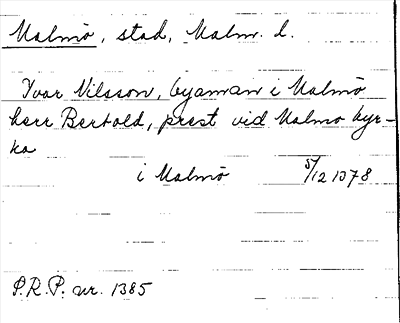 Malmö, stad, Malm. l.
Ivar Nilsson, byaman i Malmö
herr Bertold, prest vid Malmö kyr-
ka
i Malmö 5/12 1378
P.R.P. nr. 1385